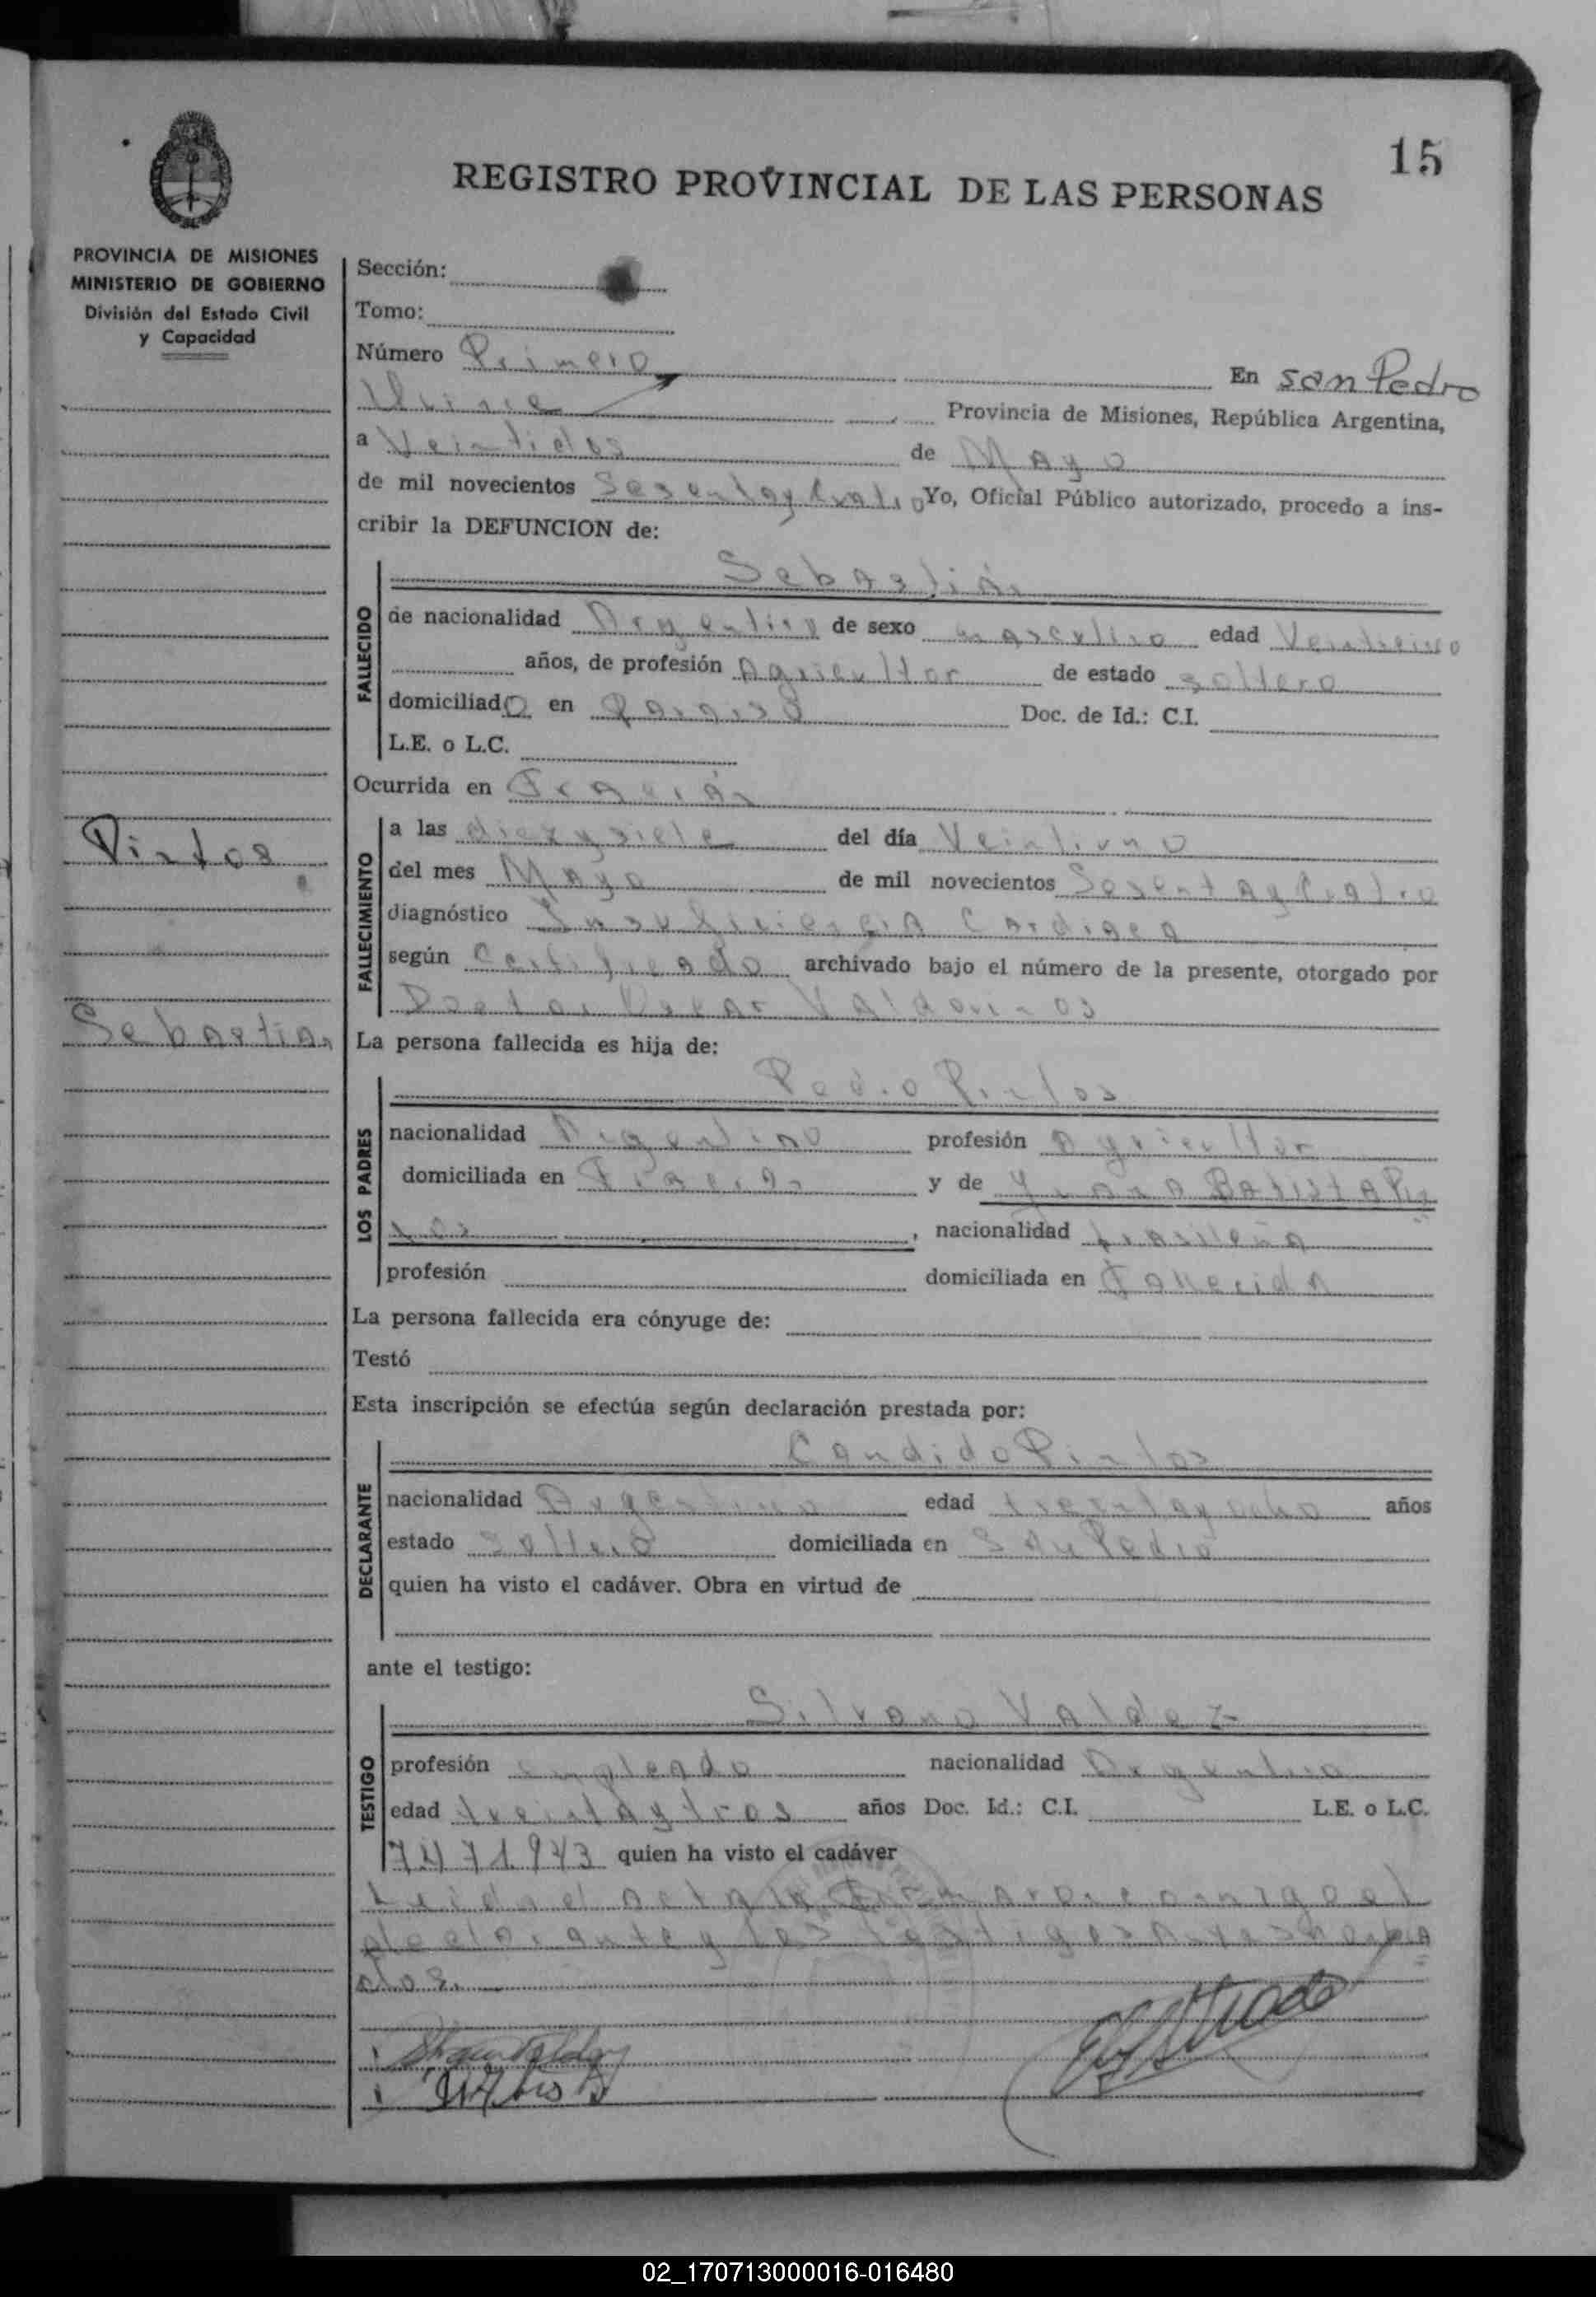 15
REGISTRO PROVINCIAL DE LAS PERSONAS
PROVINCIA DE MISIONES
MINISTERIO DE GOBIERNO
División del Estado Civil
y Capacidad
Pintos
Sebastian
Sección:
Tomo:
Número Primero
En San Pedro
Provincia de Misiones, República Argentina,
a Veintidos de Mayo
de mil novecientos Sesentaycuatro Yo, Oficial Público autorizado, procedo a ins-
cribir la DEFUNCION de:
Sebastián
FALLECIDO
de nacionalidad Argentino de sexo masculino edad
años, de profesión Agricultor de estado soltero
domiciliado en Paraiso Doc. de Id.: C.I.
L.E. o L.C.
Ocurrida en Fracrán
FALLECIMIENTO
a las diezysiete del día Veintiuno
del mes Mayo de mil novecientos Sesentaycuatro
diagnóstico Insuficiencia Cardiaca
según Certificado archivado bajo el número de la presente, otorgado por
Doctor Oscar Valdovinos
La persona fallecida es hija de:
Pedro Pintos
LOS PADRES
nacionalidad Argentino profesión Agricultor
domiciliada en Fracrán y de Juana Batista Pin
tos, nacionalidad brasileña
profesión domiciliada en Fallecida
La persona fallecida era cónyuge de:
Testó
Esta inscripción se efectúa según declaración prestada por:
Candido Pintos
DECLARANTE
nacionalidad Argentino edad treintayocho años
estado soltero domiciliada en San Pedro
quien ha visto el cadáver. Obra en virtud de
ante el testigo:
Silvano Valdez
TESTIGO
profesión empleado nacionalidad Argentino
edad treintaytres años Doc. Id.: C.I. L.E. o L.C.
7471943 quien ha visto el cadáver
Leida el acta la firmaron conmigo el
declarante y los testigos
dos.
02_170713000016-016480